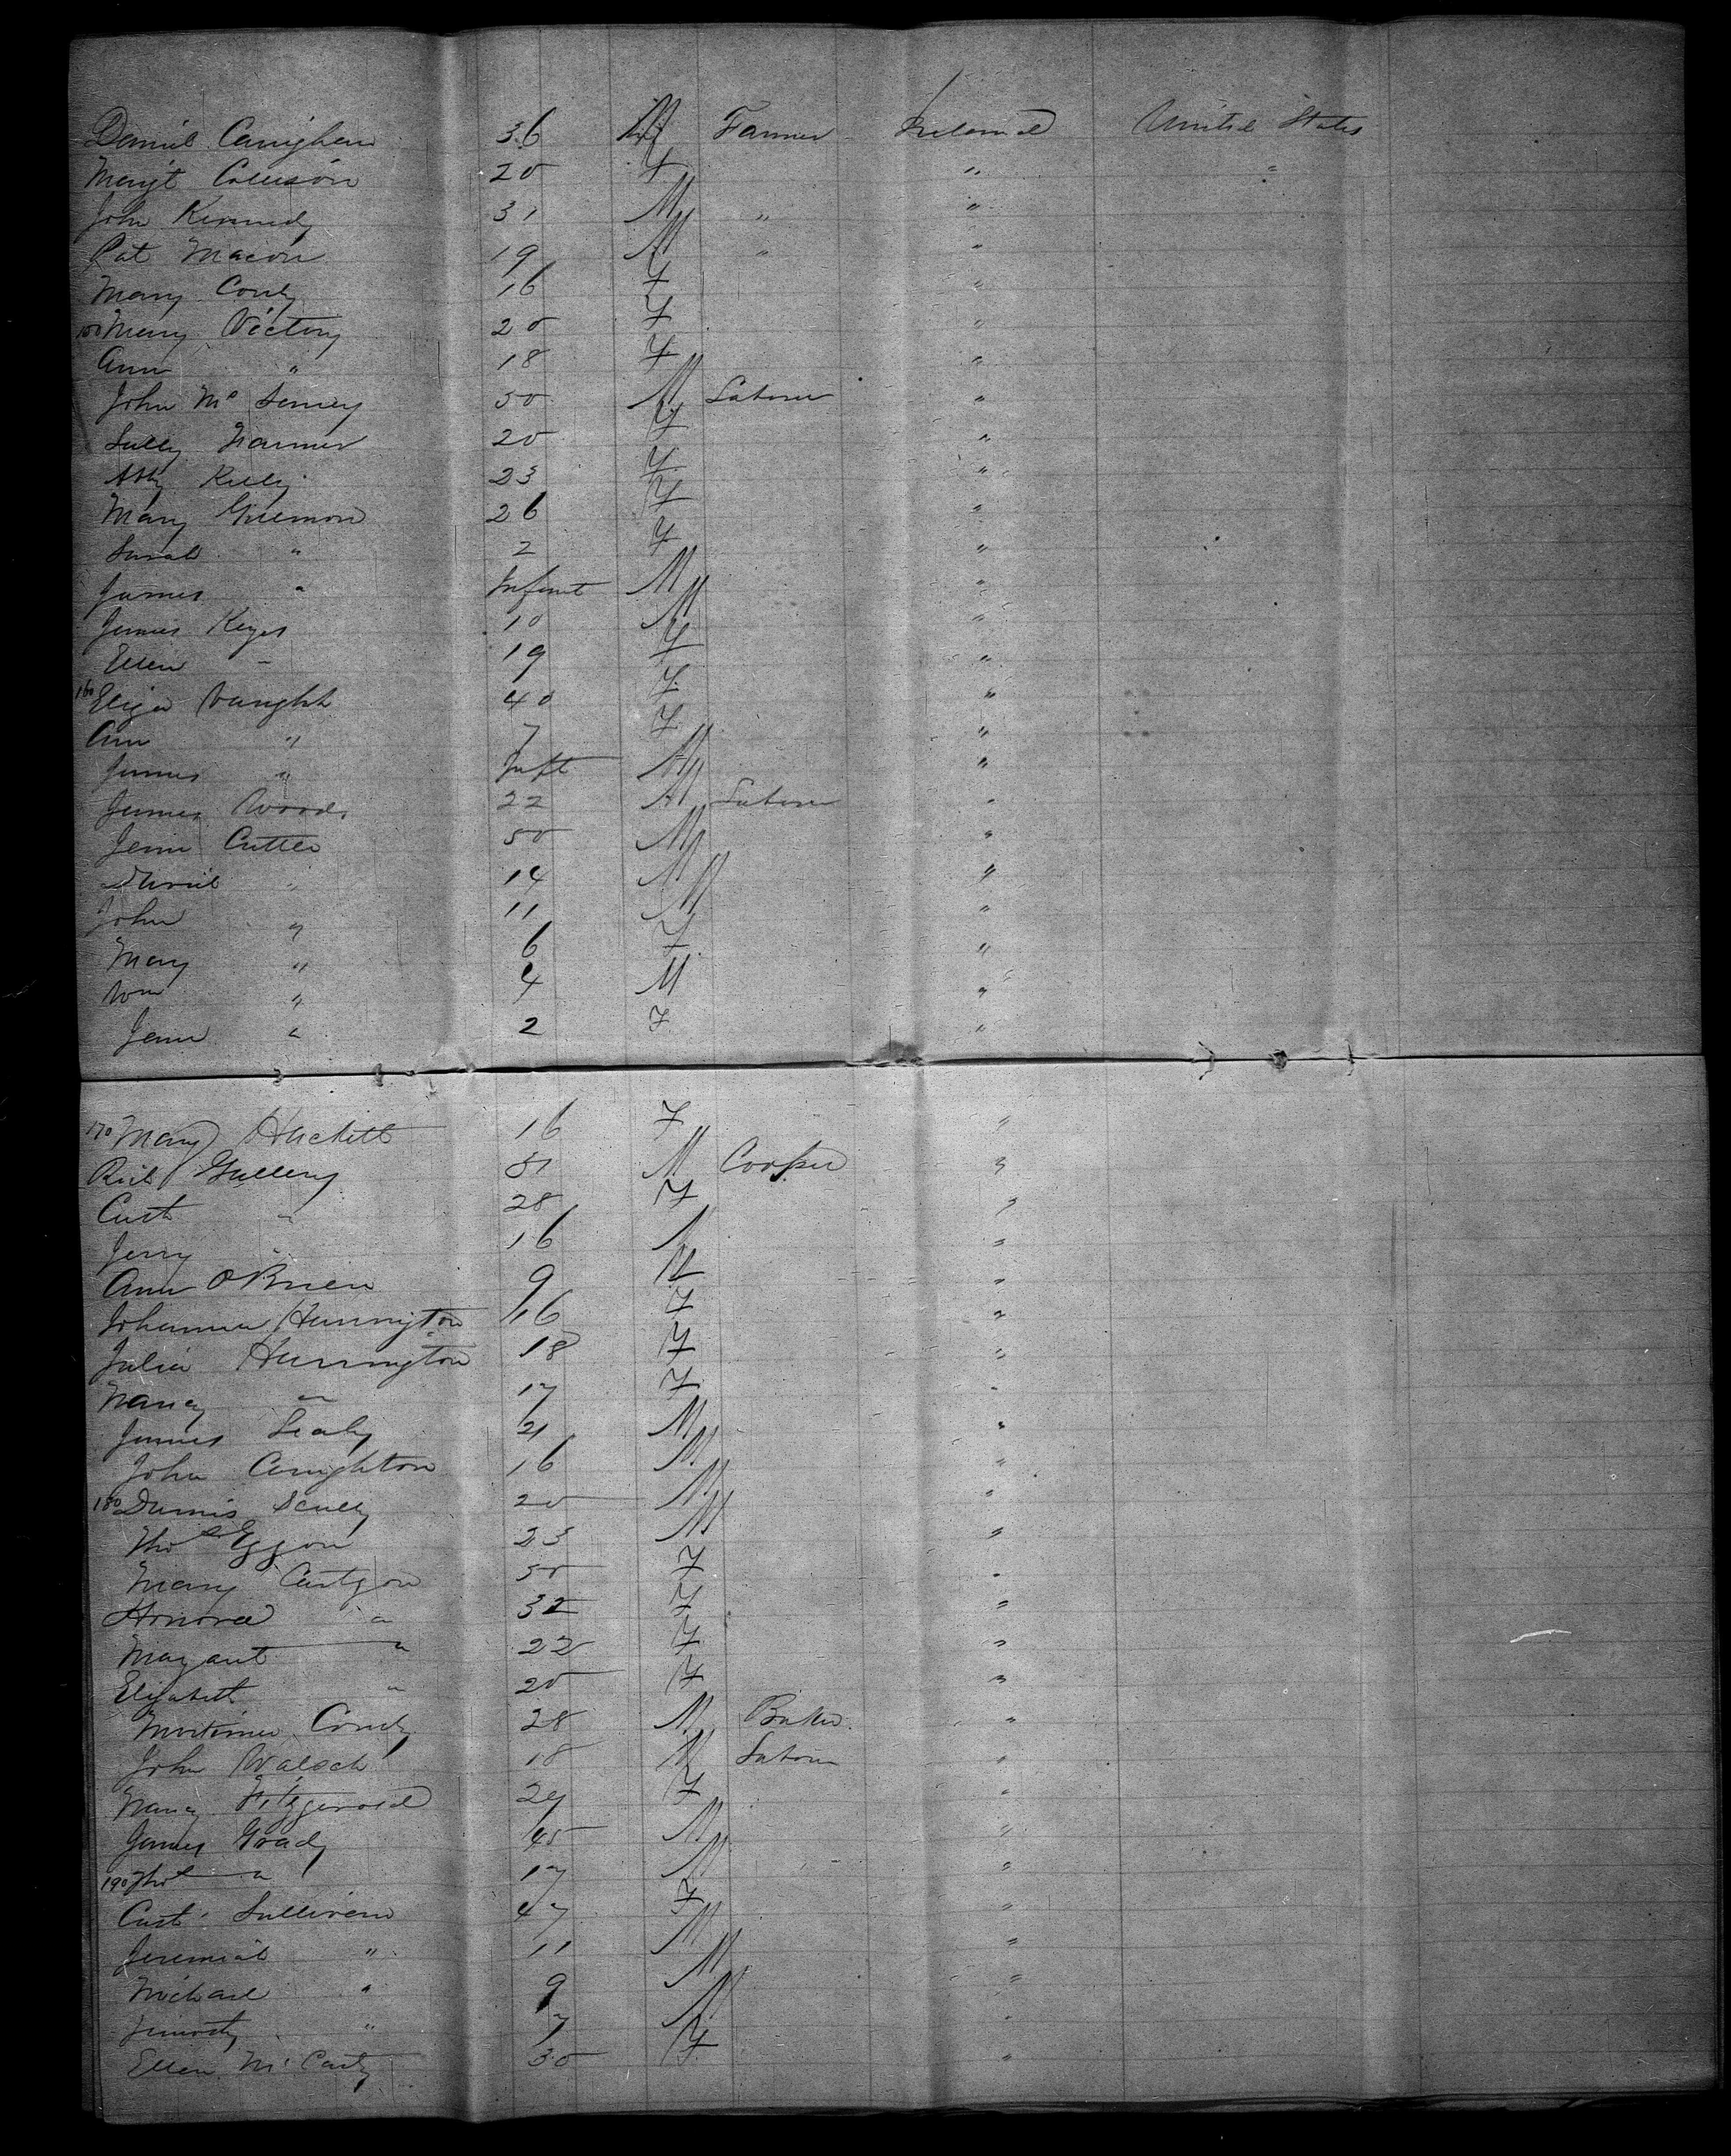 Daniel Carrighan 36 M Farmer Ireland United States
Margt 20 F " "
John Kennedy 31 M " "
Pat Macon 19 M " "
Mary Conly 16 F "
150 Mary Victory 20 F "
Ann " 18 F "
John Mc 50 M Laborer "
Sally Farmer 20 F "
Abby Kelly 23 F "
Mary 26 F "
Sarah " 2 F "
James " Infant M "
James Keyes 10 M "
Ellen " 19 F "
160 Eliza Vaught 40 F "
Ann " 7 F "
James " Inft M "
James Woods 22 M Laborer "
Jenn Cutter 50 M "
" 14 M "
John " 11 M "
Mary " 6 F "
Wm " 4 M "
Jenn " 2 F "
170 Mary Hackett 16 F "
Rich Gullery 51 M Cooper "
Cath " 28 F "
Jerry " 16 M "
Ann O'Brien 9 "
Johanna Harrington 16 F "
Julia Harrington 18 F "
Nancy " 17 F "
James Sealy 21 M "
John Canighton 16 M "
180 Dennis Scully 20 M "
Thos Eggon 23 M "
Mary 50 F "
Honora " 32 F "
Margaret " 22 F "
Elizabeth " 20 F "
Mortimer 28 M Baker "
John Walsch 18 M Laborer "
Nancy Fitzgerald 24 F "
James Grady 45 M "
190 Thos " 17 M "
Cath Sullivan 47 F "
Jeremiah " 11 M "
Michael " 9 M "
Timothy " 7 M "
Ellen McCarty 30 F "